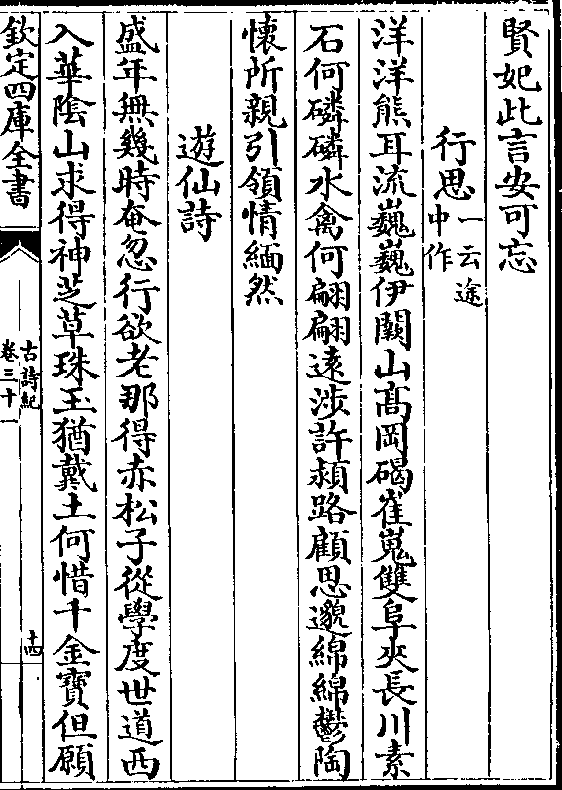 賢妃此言安可忘
行思一云途中作
洋洋熊耳流巍巍伊闕山髙岡碣崔嵬雙阜夾長川素
石何磷磷水禽何翩翩遠涉許潁路顧思邈綿綿鬱陶
懷所親引領情緬然
遊仙詩
盛年無幾時奄忽行欲老那得赤松子從學度世道西
入華陰山求得神芝草珠玉猶戴土何惜千金寶但願
欽定四庫全書
古詩紀
卷三十一
十四